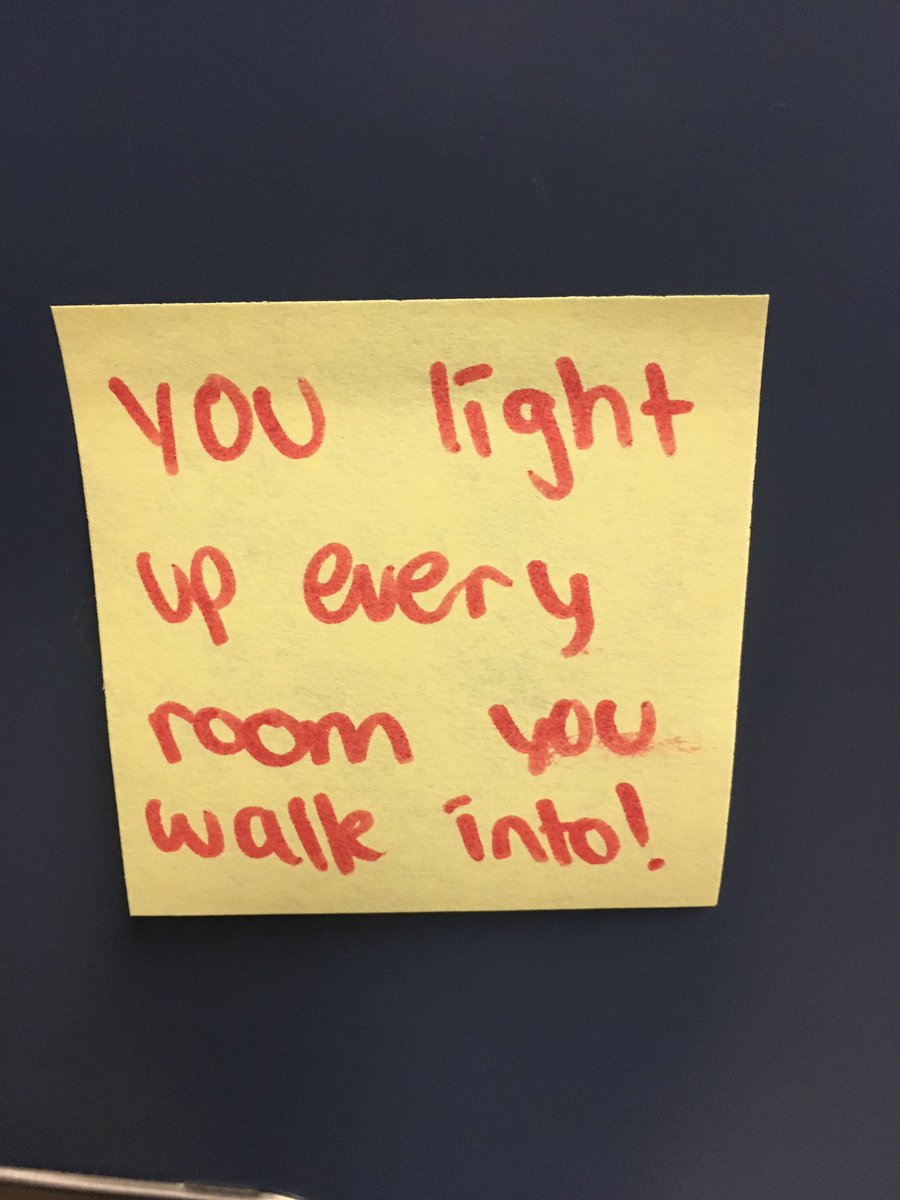 YOU light
up every
room you
walk into!